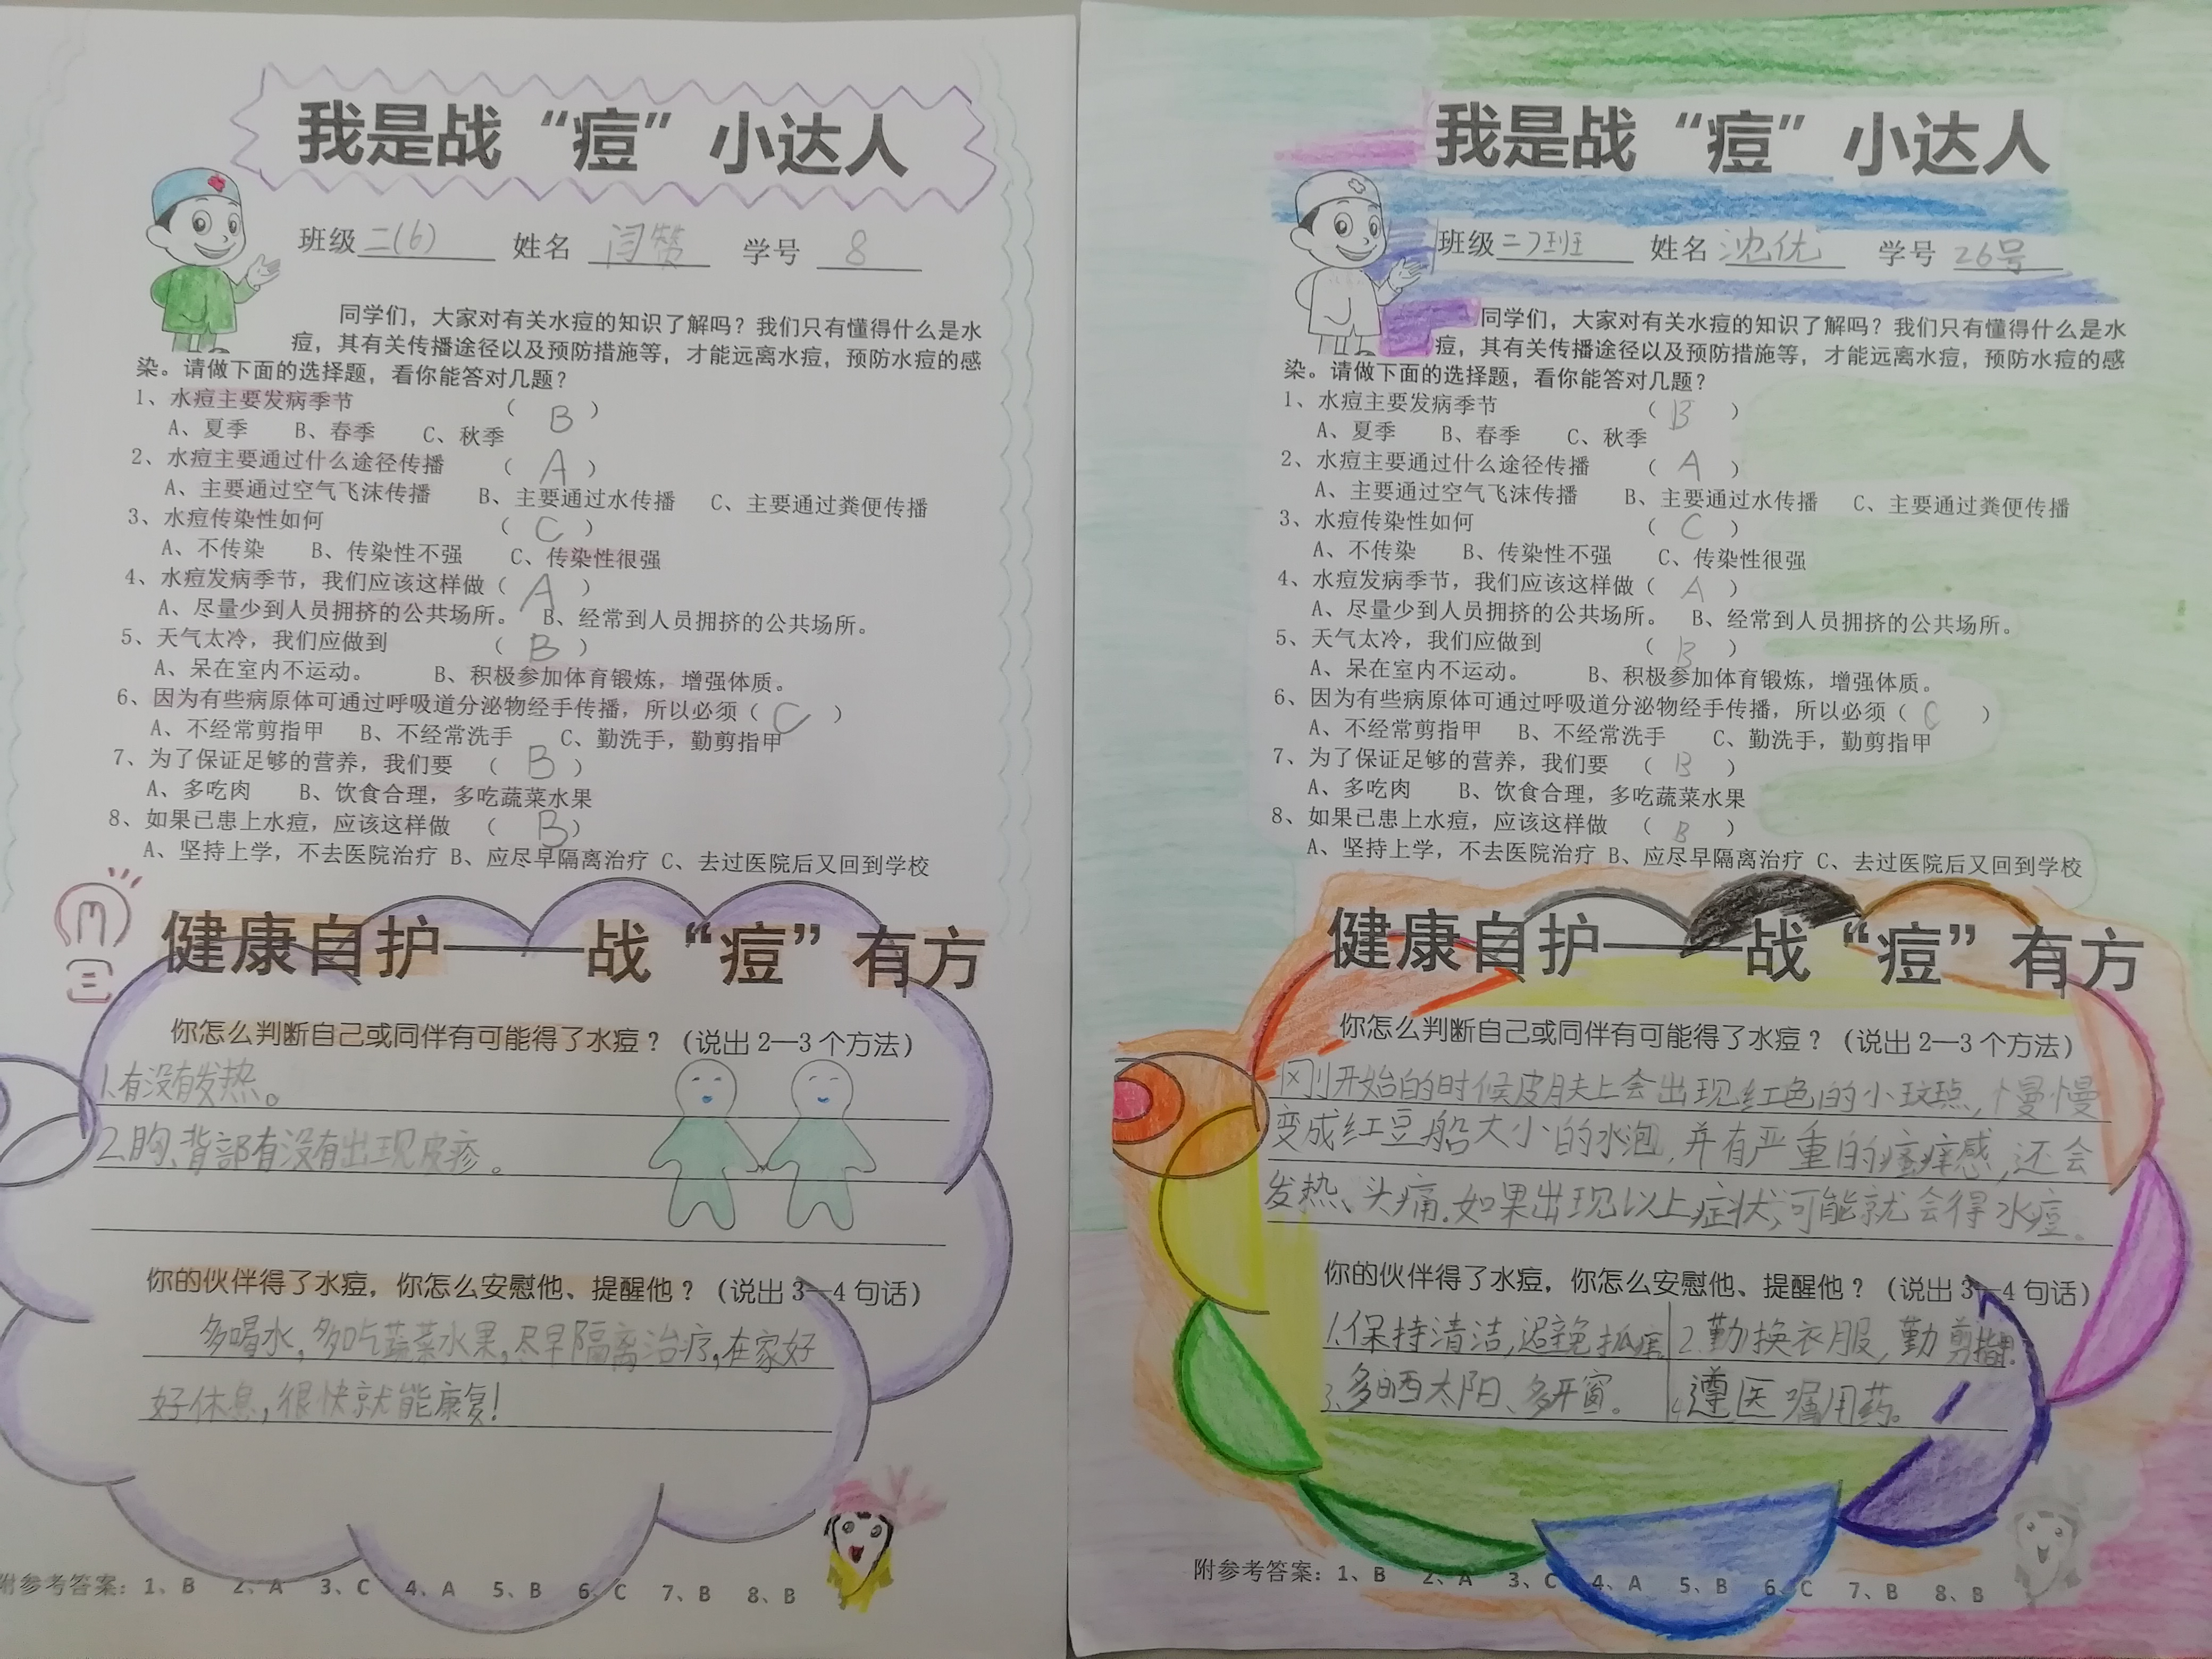 我是战“痘”小达人
班级 二(6) 姓名 闫赞 学号 8
同学们，大家对有关水痘的知识了解吗？我们只有懂得什么是水
痘，其有关传播途径以及预防措施等，才能远离水痘，预防水痘的感
染。请做下面的选择题，看你能答对几题？
1、水痘主要发病季节 （ B ）
A、夏季 B、春季 C、秋季
2、水痘主要通过什么途径传播 （ A ）
A、主要通过空气飞沫传播 B、主要通过水传播 C、主要通过粪便传播
3、水痘传染性如何 （ C ）
A、不传染 B、传染性不强 C、传染性很强
4、水痘发病季节，我们应该这样做（ A ）
A、尽量少到人员拥挤的公共场所。 B、经常到人员拥挤的公共场所。
5、天气太冷，我们应做到 （ B ）
A、呆在室内不运动。 B、积极参加体育锻炼，增强体质。
6、因为有些病原体可通过呼吸道分泌物经手传播，所以必须（ C ）
A、不经常剪指甲 B、不经常洗手 C、勤洗手，勤剪指甲
7、为了保证足够的营养，我们要 （ B ）
A、多吃肉 B、饮食合理，多吃蔬菜水果
8、如果已患上水痘，应该这样做 （ B ）
A、坚持上学，不去医院治疗 B、应尽早隔离治疗 C、去过医院后又回到学校
健康自护——战“痘”有方
你怎么判断自己或同伴有可能得了水痘？（说出 2—3 个方法）
1.有没有发热。
2.胸、背部有没有出现皮疹。
你的伙伴得了水痘，你怎么安慰他、提醒他？（说出 3—4 句话）
多喝水，多吃蔬菜水果，尽早隔离治疗，在家好
好休息，很快就能康复！
附参考答案：1、B 2、A 3、C 4、A 5、B 6、C 7、B 8、B
我是战“痘”小达人
班级 二7班 姓名 沈优 学号 26号
同学们，大家对有关水痘的知识了解吗？我们只有懂得什么是水
痘，其有关传播途径以及预防措施等，才能远离水痘，预防水痘的感
染。请做下面的选择题，看你能答对几题？
1、水痘主要发病季节 （ B ）
A、夏季 B、春季 C、秋季
2、水痘主要通过什么途径传播 （ A ）
A、主要通过空气飞沫传播 B、主要通过水传播 C、主要通过粪便传播
3、水痘传染性如何 （ C ）
A、不传染 B、传染性不强 C、传染性很强
4、水痘发病季节，我们应该这样做（ A ）
A、尽量少到人员拥挤的公共场所。 B、经常到人员拥挤的公共场所。
5、天气太冷，我们应做到 （ B ）
A、呆在室内不运动。 B、积极参加体育锻炼，增强体质。
6、因为有些病原体可通过呼吸道分泌物经手传播，所以必须（ C ）
A、不经常剪指甲 B、不经常洗手 C、勤洗手，勤剪指甲
7、为了保证足够的营养，我们要 （ B ）
A、多吃肉 B、饮食合理，多吃蔬菜水果
8、如果已患上水痘，应该这样做 （ B ）
A、坚持上学，不去医院治疗 B、应尽早隔离治疗 C、去过医院后又回到学校
健康自护——战“痘”有方
你怎么判断自己或同伴有可能得了水痘？（说出 2—3 个方法）
刚开始的时候皮肤上会出现红色的小斑点，慢慢
变成红豆般大小的水泡，并有严重的瘙痒感，还会
发热、头痛。如果出现以上症状，可能就会得水痘。
你的伙伴得了水痘，你怎么安慰他、提醒他？（说出 3—4 句话）
1.保持清洁，避免抓痒 2.勤换衣服，勤剪指甲.
3.多晒太阳、多开窗。 4.遵医嘱用药。
附参考答案：1、B 2、A 3、C 4、A 5、B 6、C 7、B 8、B